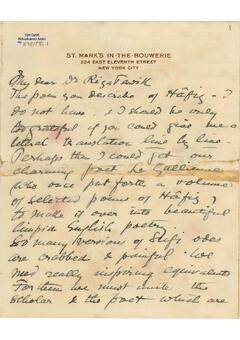 1
ST. MARK'S IN-THE-BOUWERIE
234 EAST ELEVENTH STREET
NEW YORK CITY
My dear Dr Riza Tevfik
The poem you describe of Hâfiz - I
do not have, & I should be only
too grateful if you could give me a
literal translation line by line.
Perhaps then I could get our
charming poet Le Gallienne
(who once put forth a volume
of selected poems of Hâfiz)
to make it over into beautiful
limpid English poetry.
So many versions of Sufi odes
are crabbed & painful. We
need really inspiring equivalents
For them we must unite the
scholar & the poet which are